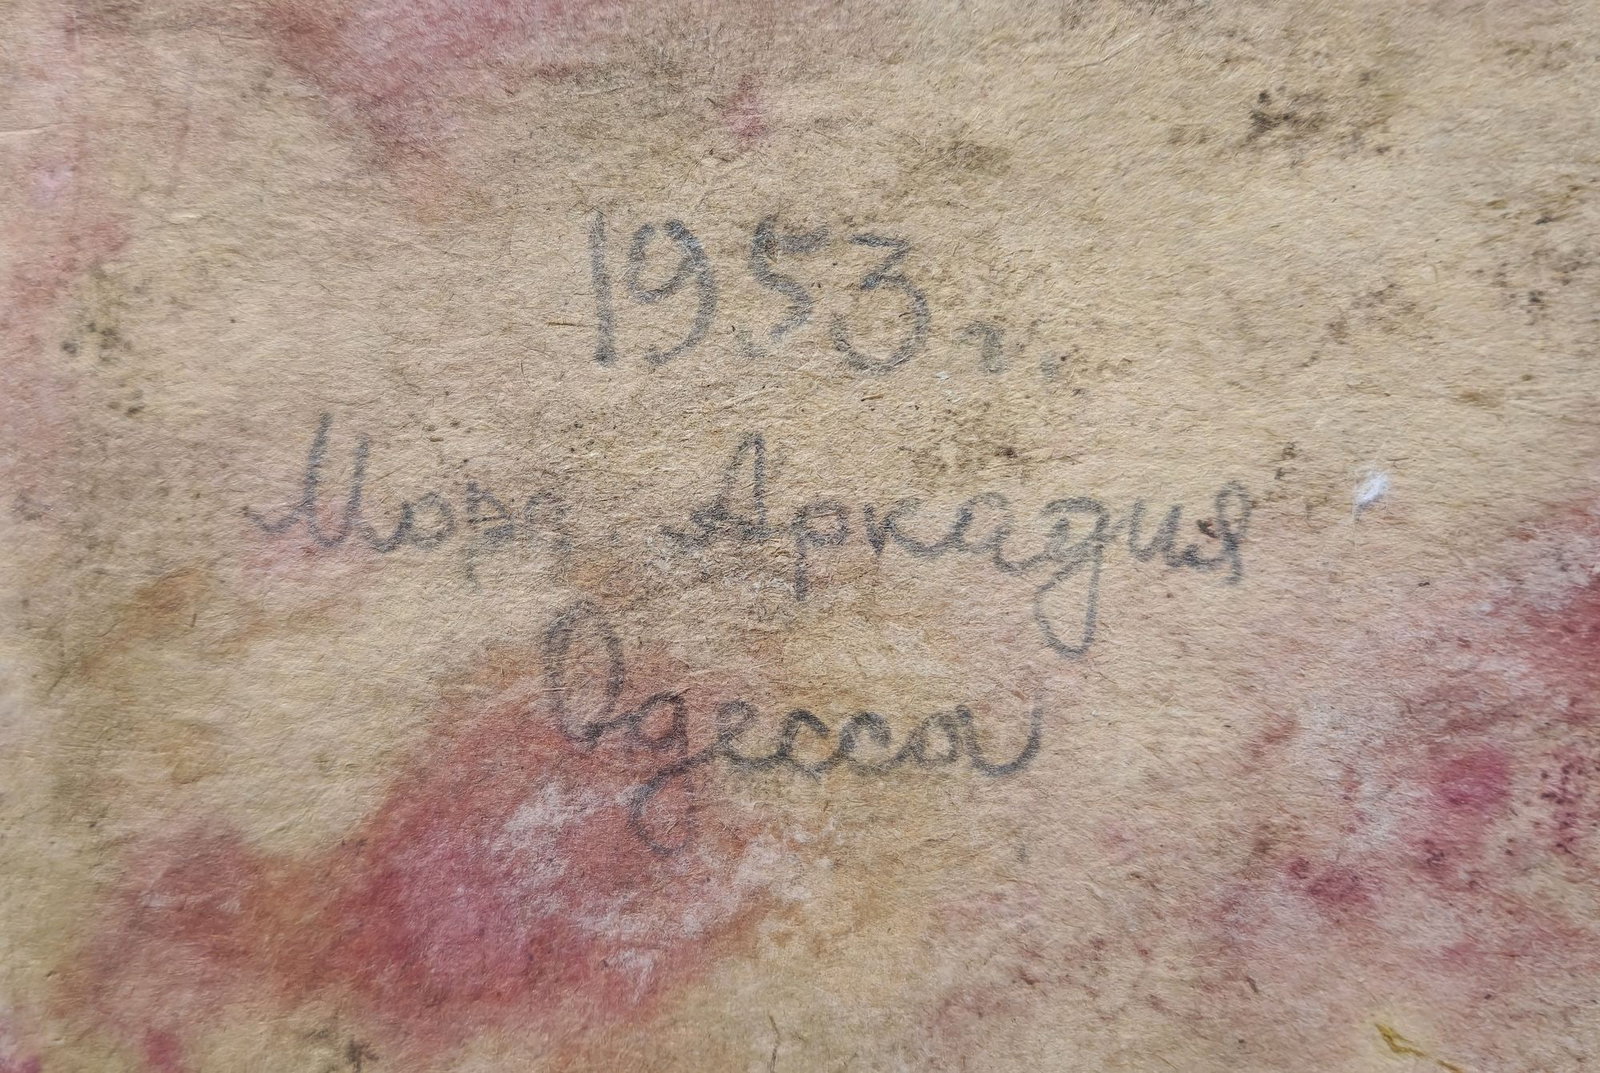 1953 г.
Море. Аркадия
Одесса